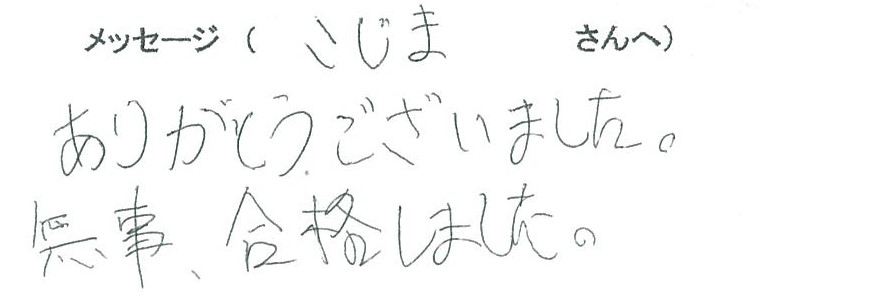 メッセージ（ こじま さんへ）
ありがとうございました。
無事、合格しました。